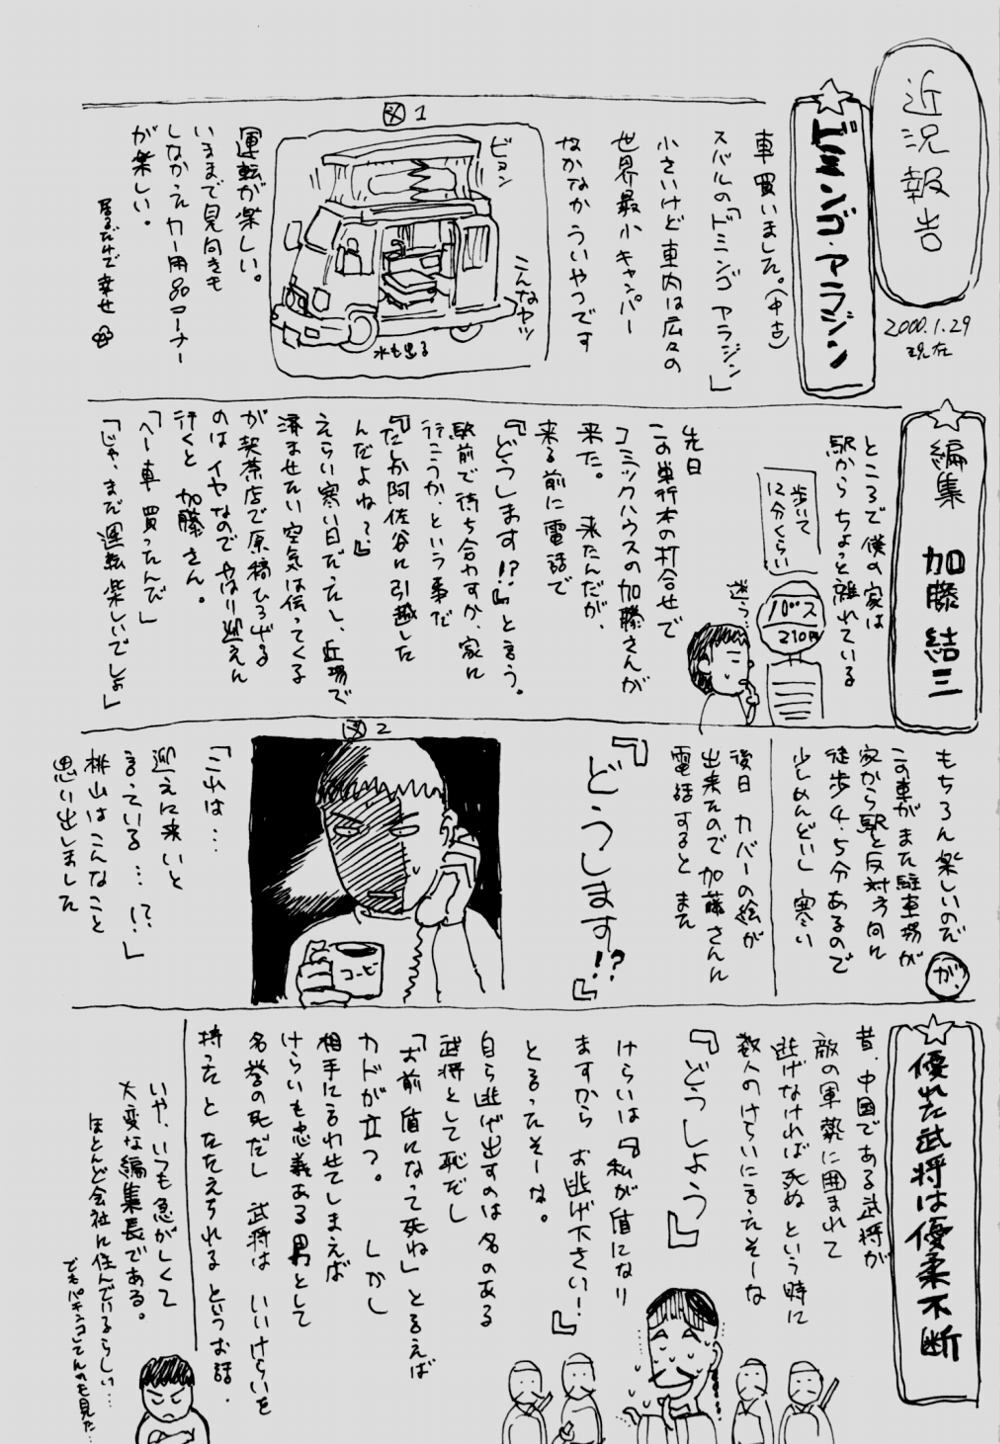 近況報告
2000.1.29
現在
ドミンゴ・アラジン
車買いました。(中古)
スバルの「ドミンゴ アラジン」
小さいけど車内は広々の
世界最小キャンパー
なかなかういやつです
図1
ビヨン
こんなヤツ
水も出る
運転が楽しい。
いままで見向きも
しなかったカー用品コーナー
が楽しい。
居るだけで幸せ
編集 加藤 結三
ところで僕の家は
駅からちょっと離れている
歩いて
12分くらい
バス
210円
迷う…
先日
この単行本の打合せで
コミックハウスの加藤さんが
来た。 来たんだが、
来る前に電話で
『どうします!?』と言う。
駅前で待ち合わすか、家に
行こうか、という事だ
『たしか阿佐谷に引越した
んだよね?』
えらい寒い日だったし、近場で
済ませたい空気は伝ってくる
が喫茶店で原稿ひろげる
のはイヤなのでやはり迎えに
行くと 加藤さん。
「へー車買ったんだ」
「じゃ、まだ運転楽しいでしょ」
もちろん楽しいのだ
が、
この車がまた駐車場が
家から駅と反対方向に
徒歩4、5分あるので
少しめんどいし 寒い
後日 カバーの絵が
出来たので加藤さんに
電話すると また
『どうします!?』
図2
コーヒー
「これは…
迎えに来いと
言っている…!?」
桃山はこんなこと
思い出しました
優れた武将は優柔不断
昔、中国である武将が
敵の軍勢に囲まれて
逃げなければ死ぬ という時に
数人のけらいに言ったそーな
『どうしよう』
けらいは『私が盾になり
ますから お逃げ下さい!』
と言ったそーな。
自ら逃げ出すのは名のある
武将として恥だし
「お前 盾になって死ね」と言えば
カドが立つ。 しかし
相手に言わせてしまえば
けらいも忠義ある男として
名誉の死だし 武将は いいけらいを
持った とたたえられる というお話.
いや、いつも急がしくて
大変な編集長である。
ほとんど会社に住んでいるらしい…
でもパチンコしてんのも見た…